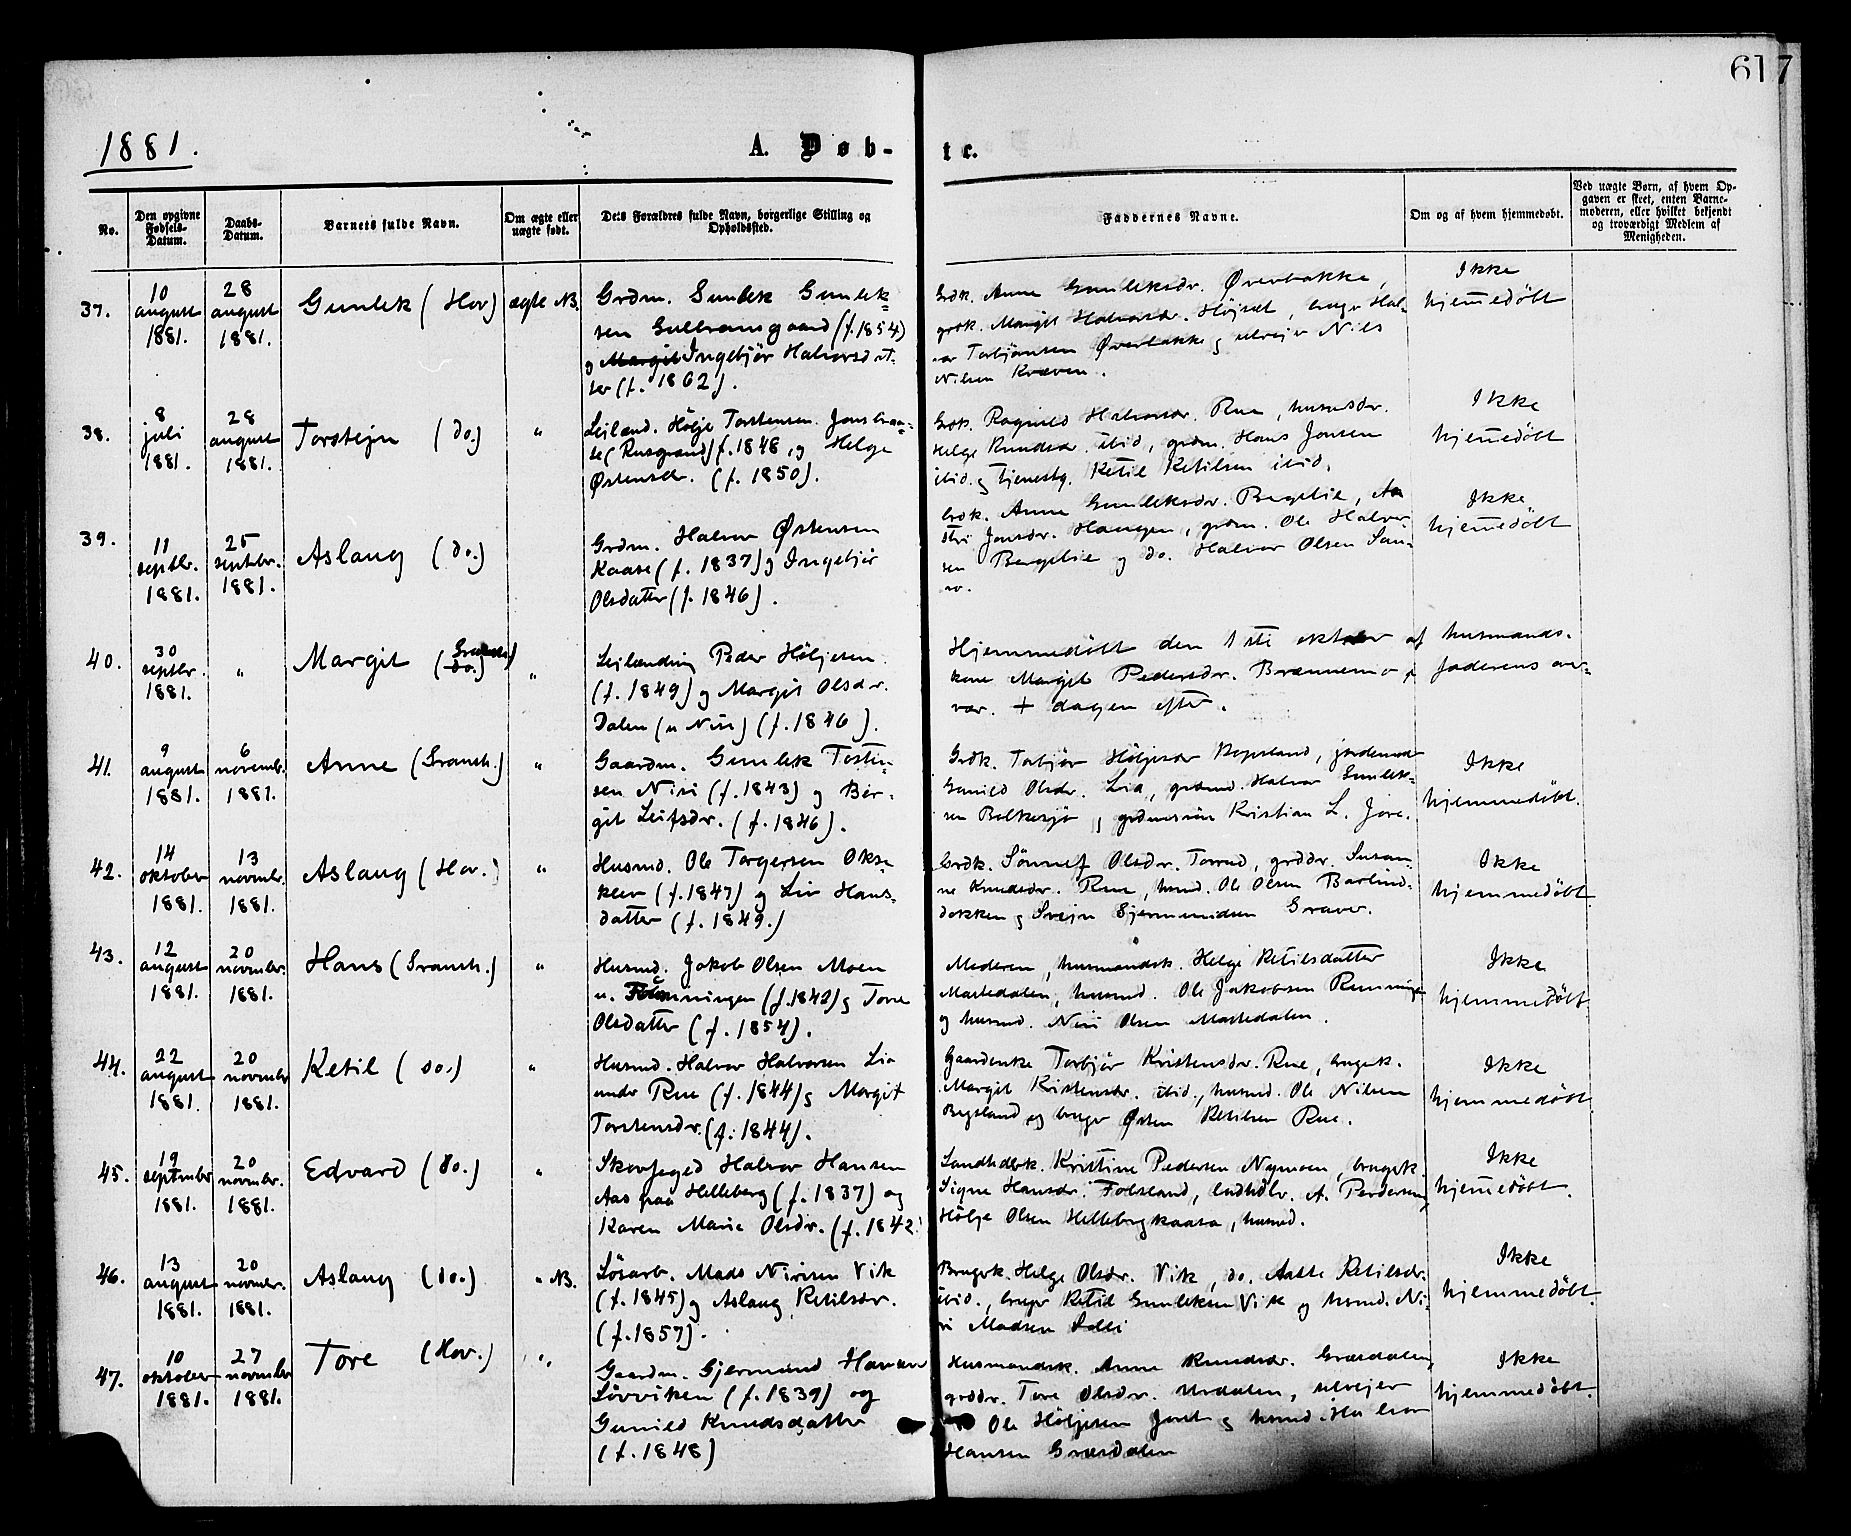 617
1881.
A. Døb-
te.
No.
Den opgivne Fødsels-Datum.
Daabs-Datum.
Barnets fulde Navn.
Om ægte eller uægte født.
Dets Forældres fulde Navn, borgerlige Stilling og Opholdssted.
Faddernes Navne.
Om og af hvem hjemmedøbt.
Ved uægte Børn, af hvem Opgaven er skeet, enten Barnemoderen, eller hvilket bekjendt og troværdigt Medlem af Menigheden.
37. 10 august 1881. 28 august 1881. Gunlek (Hov) ægte NB.
Grdm. Gunlek Gunlek-
sen Gullransgaard (f. 1854)
og Margit Ingebjør Halvorsdat-
ter (f. 1862).
Grdk. Anne Gunleksdr. Øverbakke,
grdk. Margit Halvorsdr. Højset, brugr Hal-
vor Torbjønsen Øverbakke og selvejer Nils
Nilsen Kraven.
Ikke
hjemmedöbt
38. 8 juli 1881. 28 august 1881. Torstejn (do.) "
Leilænd. Hølje Torstensen
(Ruegrand) f. 1848, og Helge
Østensdr. (f. 1850).
Grdk. Ragnild Halvorsdr. Rue, husmsdr.
Helge Knudsdr. ibid, grdm. Hans Jonsen
ibid. og tjenestg. Ketil Ketilsen ibid.
Ikke
hjemmedöbt
39. 11 septbr. 1881. 25 septbr. 1881. Aslaug (do.)
Grdm. Halvor Østensen
Kaase (f. 1837) og Ingebjør
Olsdatter (f. 1846).
Grdk. Anne Gunleksdr. Bergelie, As-
tri Jonsdr. Haugen, grdm. Ole Halvor-
sen Bergelie og do. Halvor Olsen San-
Ikke
hjemmedöbt
40. 30 septbr. 1881. " Margit (do.) "
Leilænding Peder Høljesen
(f. 1849) og Margit Olsdr.
Dalen (u Nisi) (f. 1846).
Hjemmedöbt den 1ste oktober af husmands-
kone Margit Pedersdr. Brænnemo i faderens nær-
vær. + dagen efter.
41. 9 august 1881. 6 novemb. 1881. Anne (Gransh.) "
Gaardm. Gunlek Tosten-
sen Nisi (f. 1843) og Bir-
git Leifsdr. (f. 1846).
Grdk. Torbjør Höljesdr Bogsland, jordemod
Gunild Olsdr. Lia, grdmd. Halvor Gunlek-
sen Bolkesjø, grdmssøn Kristian L. Jore.
Ikke
hjemmedöbt.
42. 14 oktober 1881. 13 novmbr. 1881. Aslaug (Hov.) "
Husmd. Ole Torgersen Okse-
klev (f. 1847) og Liv Hans-
datter (f. 1849.)
Grdk. Sönnef Olsdr. Torrud, grddr. Susan-
ne Knudsdr. Rue, husmd. Ole Olsen Barlind-
dokken og Svejn Gjermundsen Graver.
Ikke
hjemmedöbt
43. 12 august 1881. 20 novmbr. 1881. Hans (Gransh.) "
Husmd. Jakob Olsen Moen
u. (f. 1842) og Tore
Olsdatter (f. 1854).
Moderen, husmandsk. Helge Ketilsdatter
Mastedalen, husmd. Ole Jakobsen Rønninge
og husmd. Niri Olsen Mastedalen.
Ikke
hjemmedöbt.
44. 22 august 1881. 20 novmbr 1881. Ketil (do.) "
Husmd. Halvor Halvorsen Lia
under Rue (f. 1844) og Margit
Torstensdr. (f. 1844).
Gaardenke Torbjør Kristensdr. Rue, brugek.
Margit Kristensdr. ibid., husmd. Ole Nilsen
Bogsland og brugr Østen Ketilsen Rue.
Ikke
hjemmedöbt
45. 19 septmber 1881. 20 novmbr. 1881. Edvard (do.) "
Skovfoged Halvor Hansen
Aas paa Helleberg (f. 1837) og
Karen Marie Olsdr. (f. 1842)
Landhdlerk. Kristine Pedersen Nymoen, brugek
Signe Hansdr. Folsland, landhdlr. A. Pedersen,
Hölje Olsen Hellebergkaasa, husmd.
Ikke
hjemmedöbt.
46. 13 august 1881. 20 novmbr. 1881. Aslaug (do.) " NB.
Løsarb. Mads Nirisen Vik
(f. 1845) og Aslaug Ketilsdr.
(f. 1857).
Brugek. Helge Olsdr. Vik, do. Aaste Ketilsdr.
ibid., brugr Ketil Gunleksen Vik og husmd. Ni-
ri Madsen Solli
Ikke
hjemmedöbt.
47. 10 oktober 1881. 27 novmber 1881. Tore (Hov.) "
Gaardm. Gjermund Hansen
Lövviken (f. 1839) og
Gunild Knudsdatter
(f. 1848)
Husmandsk. Anne Knudsdr. Græsdalen,
grddr. Tore Olsdr. Urdalen, selvejer
Ole Höljesen Joret og husmd. Halvor
Hansen Græsdalen
Ikke
hjemmedöbt.